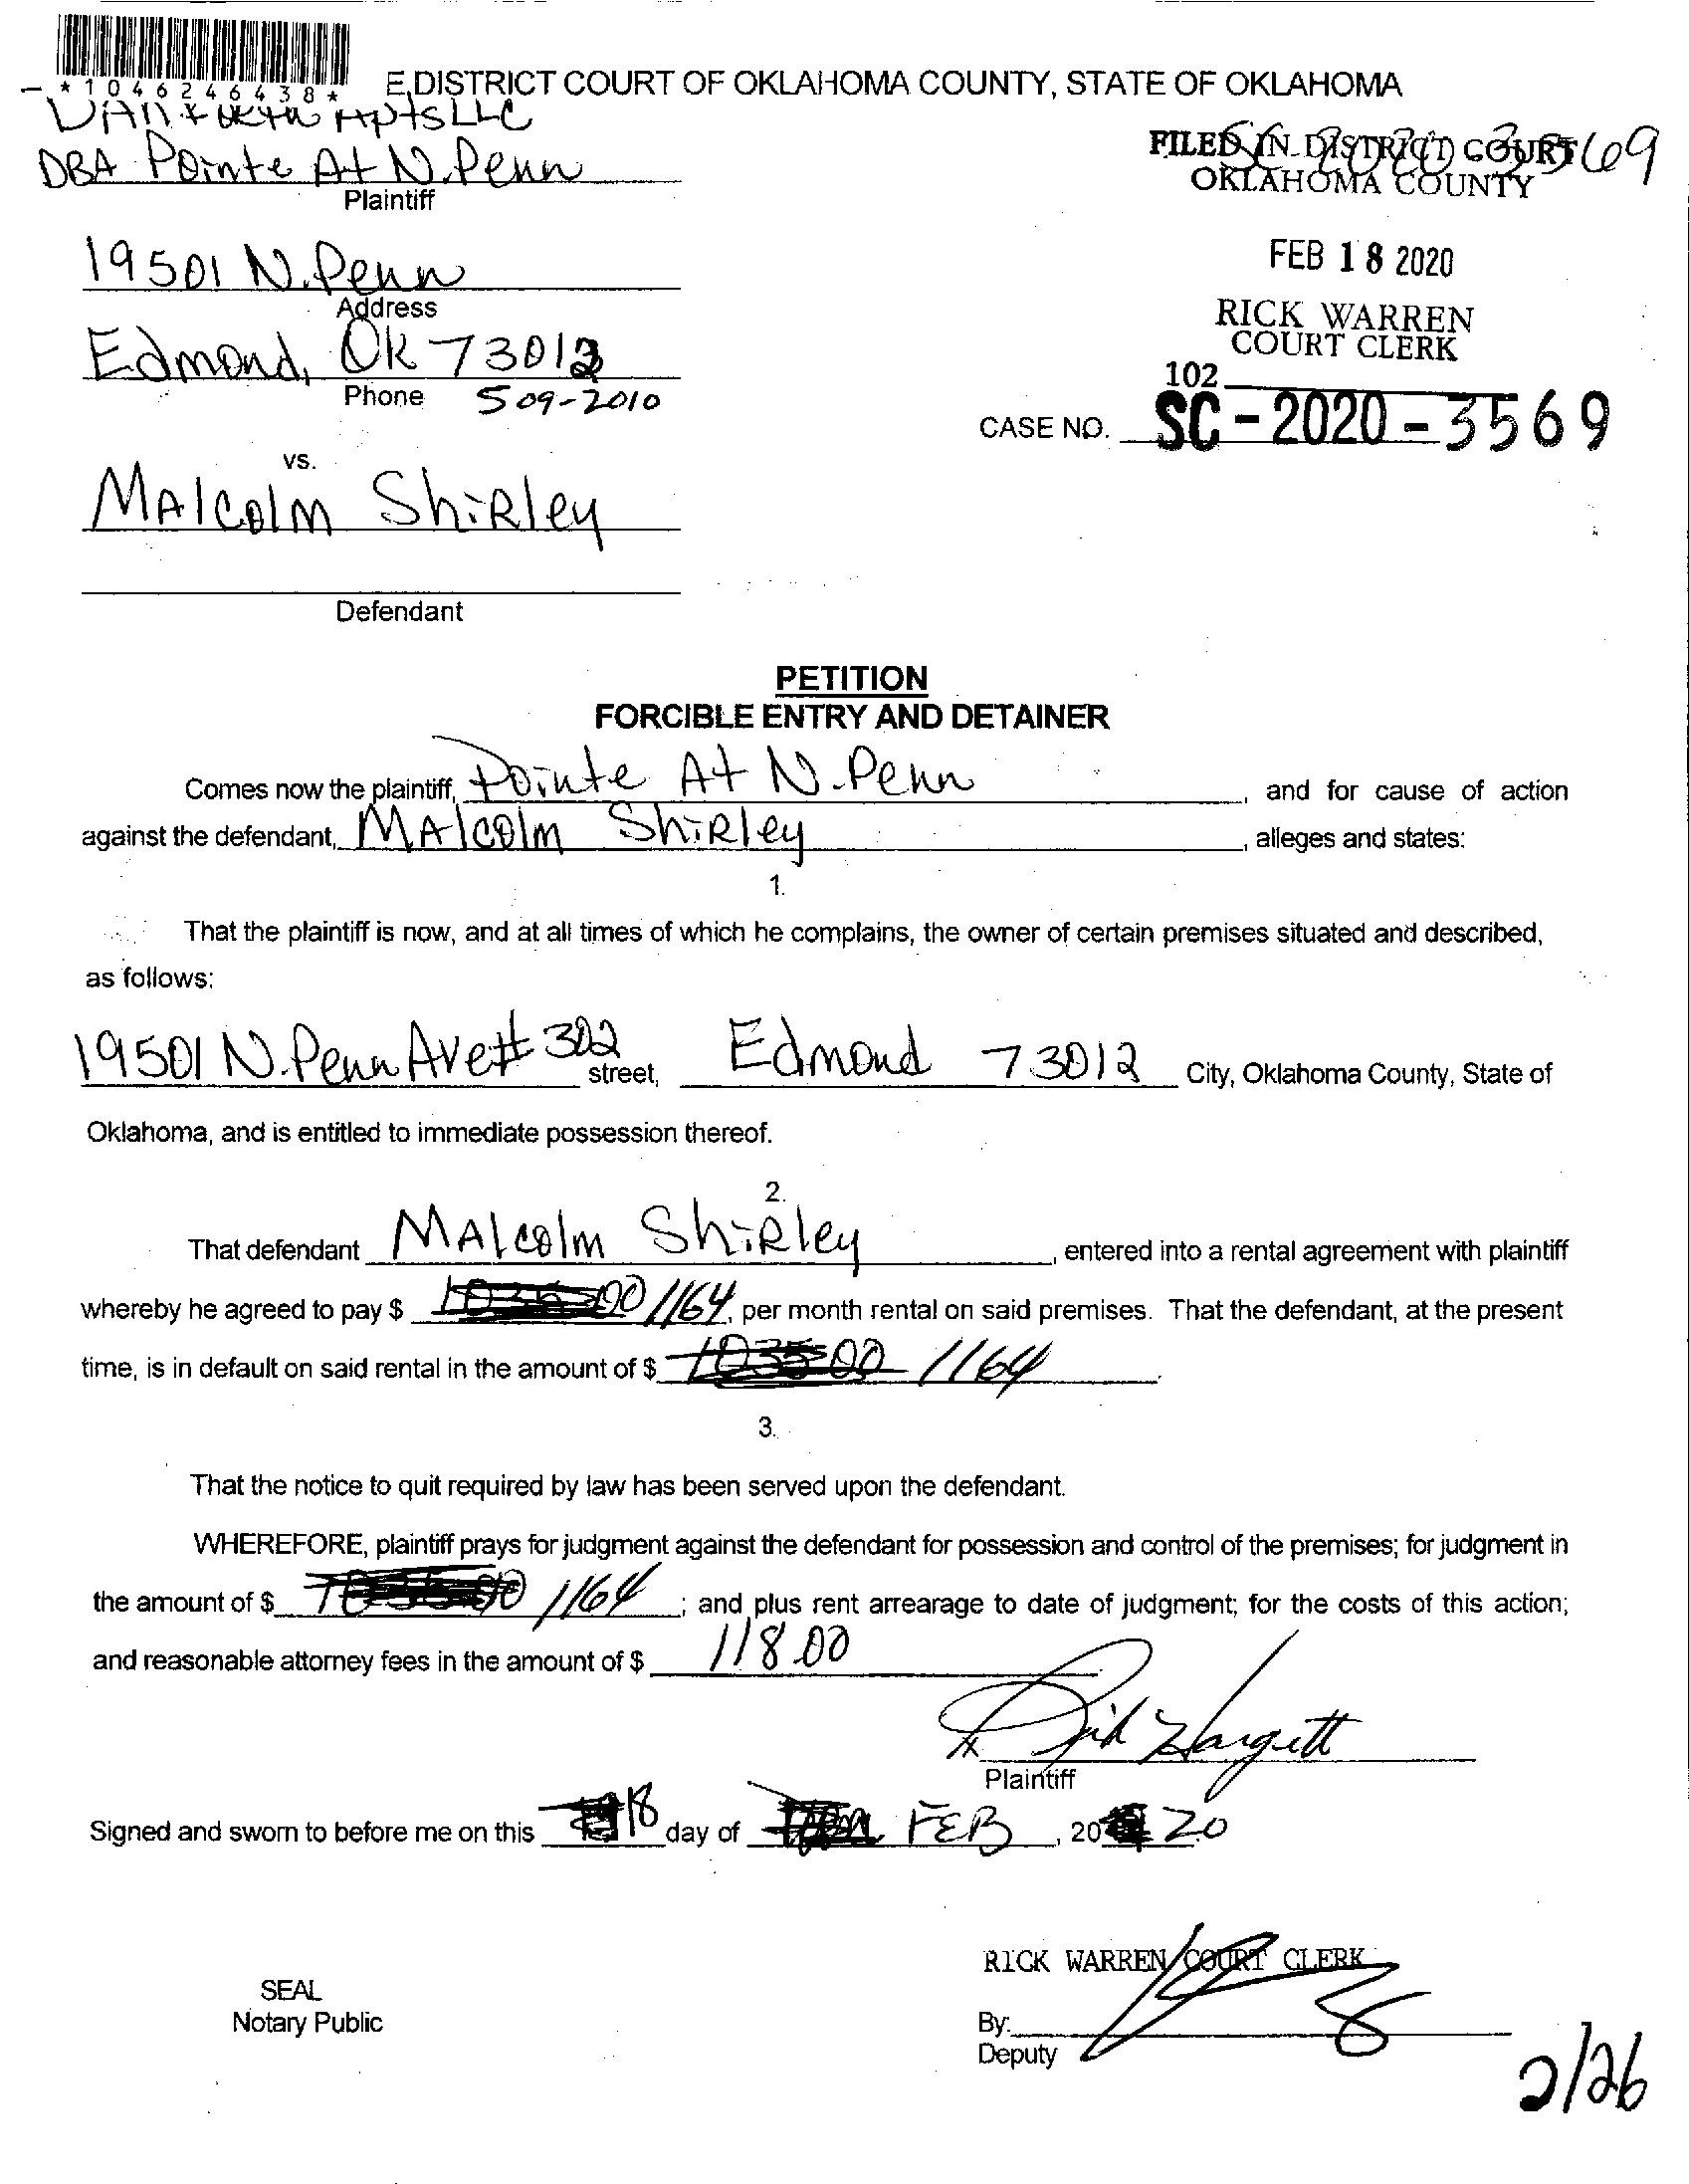 *1046246438*
E DISTRICT COURT OF OKLAHOMA COUNTY, STATE OF OKLAHOMA
Apts LLC
DBA Pointe At N. Penn
Plaintiff
FILED IN DISTRICT COURT
OKLAHOMA COUNTY
SC 2020 3569
19501 N. Penn
Address
FEB 18 2020
RICK WARREN
COURT CLERK
Edmond, OK 73012
Phone 509-2010
102
CASE NO. SC-2020-3569
vs.
Malcolm Shirley
Defendant
PETITION
FORCIBLE ENTRY AND DETAINER
Comes now the plaintiff, Pointe At N. Penn, and for cause of action
against the defendant, Malcolm Shirley, alleges and states:
1.
That the plaintiff is now, and at all times of which he complains, the owner of certain premises situated and described,
as follows:
19501 N. Penn Ave # 302 street, Edmond 73012 City, Oklahoma County, State of
Oklahoma, and is entitled to immediate possession thereof.
2.
That defendant Malcolm Shirley, entered into a rental agreement with plaintiff
whereby he agreed to pay $ 1035.00 1164, per month rental on said premises. That the defendant, at the present
time, is in default on said rental in the amount of $ 1035.00 1164.
3.
That the notice to quit required by law has been served upon the defendant.
WHEREFORE, plaintiff prays for judgment against the defendant for possession and control of the premises; for judgment in
the amount of $ 1035.00 1164; and plus rent arrearage to date of judgment; for the costs of this action;
and reasonable attorney fees in the amount of $ 118.00
x Hargett
Plaintiff
Signed and sworn to before me on this 18 day of FEB, 20 20
RICK WARREN COURT CLERK
SEAL
Notary Public
By:
Deputy
2/26